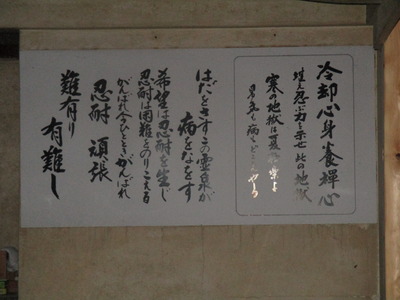 冷却心身養禅心
堪え忍ぶ力を示せ此の地獄
寒の地獄は夏極楽よ
はだをさすこの霊泉が
病をなをす
希望は忍耐を生じ
忍耐は困難をのりこえる
がんばれ今ひとときがんばれ
忍耐 頑張
難有り 有難し